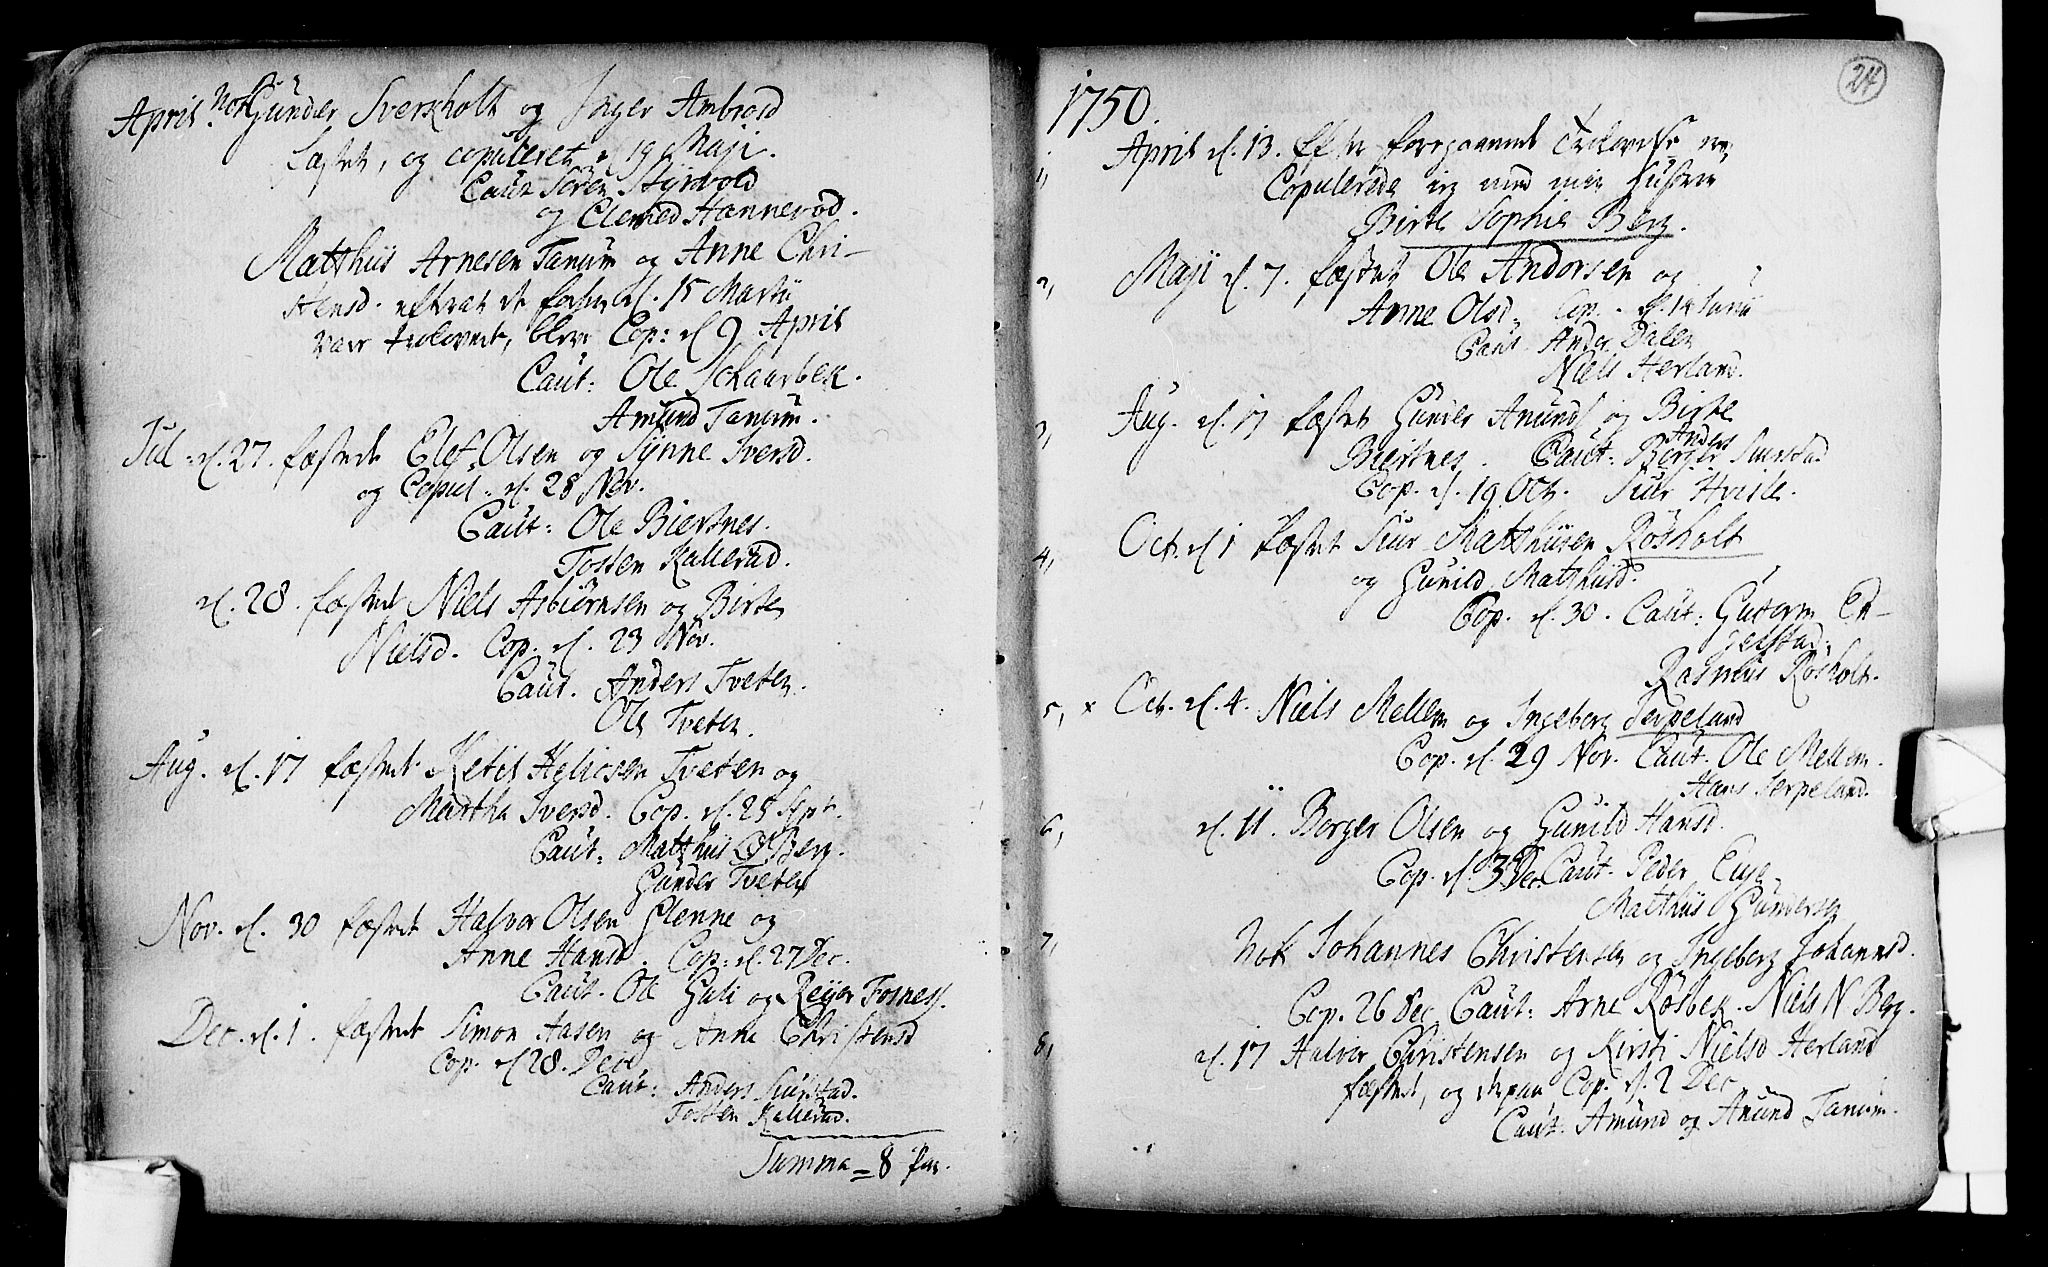 April. nok Gunder Sverkholt og Inger Ambrosd
Fæstet, og copuleret d. 19 Maji.
Caut Sören Styrvold
og Clemed Hannevod.
Matthiis Arnesen Tanum og Anne Chri-
stensd. efterat de forhen d. 15 Martii
vare trolovede, bleve Cop: d 9 April
Caut: Ole Schaarbek.
Amund Tanum.
Jul. d. 27. fæstede Elef Olsen og Synne Iversd.
og Copul. d. 28 Nov.
Caut: Ole Biertnes.
Tosten Kallerud.
d. 28. fæstet Niels Asbiörnsen og Birte
Nielsd. Cop. d. 23 Nov.
Caut. Anders Tveten.
Ole Tveten.
Aug. d. 17 fæstet Ketil Tveten og
Martha Iversd. Cop. d. 28 Sept.
Caut: Matthiis Berg.
Gunder Tveten
Nov. d. 30 fæstet Halvor Olsen Glenne og
Anne Hansd. Cop: d. 27 Dec.
Caut. Ole Guli og Reyer Fosness.
Dec. d. 1. fæstet Simon Aasen og Anne Christensd
Cop. d 28. Dec
Caut: Anders Suirstad.
Tosten Kallerud.
Summa = 8 par.
24
1750.
1, April d. 13. Efter foregaaende Trolovelse
Copulerede jeg med min Hustrue
Birte Sophie Berg.
2, Maji d. 7. fæstet Ole Andorsen og
Anne Olsd. Cop. d. 14 Junii
Caut. Andr. Dalen
Niels Herland.
3, Aug. d. 17 fæstet Gunder Anunds og Birte
Biertnes. Caut: Borger Anders Suirstad
Cop. d. 19 Oct. Siur Hvisle.
4, Oct. d 1 fæstet Siur Matthiisen Rösholt
og Gunild Matthiisd.
Cop. d. 30. Caut: Gutorm En-
gelstad.
Rasmus Rösholt.
5, x Oct. d. 4. Niels Mellem og Ingeborg Serpeland
Cop. d. 29 Nov. Caut. Ole Mellem.
Hans Serpeland.
6, d. 11. Borger Olsen og Gunild Hansd.
Cop. d. 3 Dec. Caut. Peder Eeye
Matthiis Gundersen
7, nok Johannes Christensen og Ingeborg Johannsd.
Cop. 26 Dec Caut: Arne Rösbek. Niels N Berg.
8, d. 17 Halvor Christensen og Kirsti Nielsd Herland
fæstet, og derpaa Cop. d. 2 Dec
Caut. Amund og Anund Tanum.